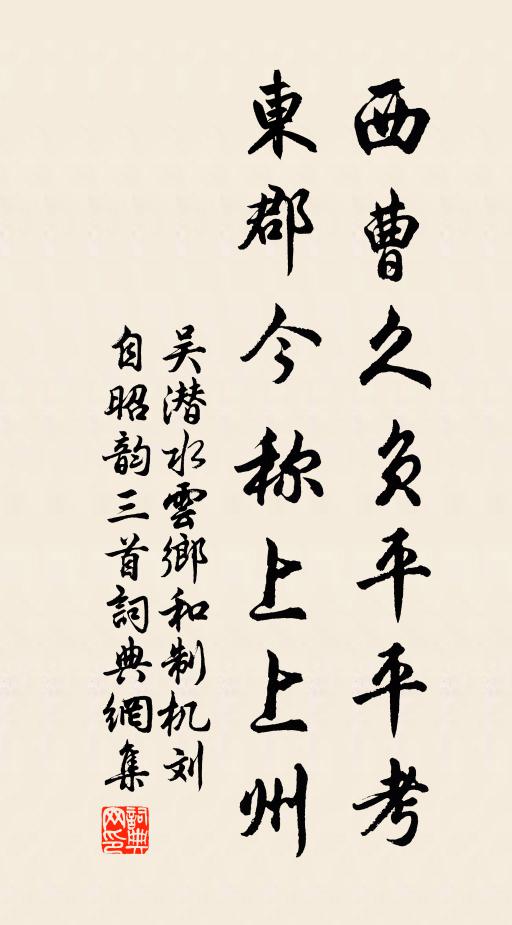 西曹久负平平考
東郡今称上上州
吴潜水雲鄉和制机刘
自昭韵三首詞典網集
詞典网印